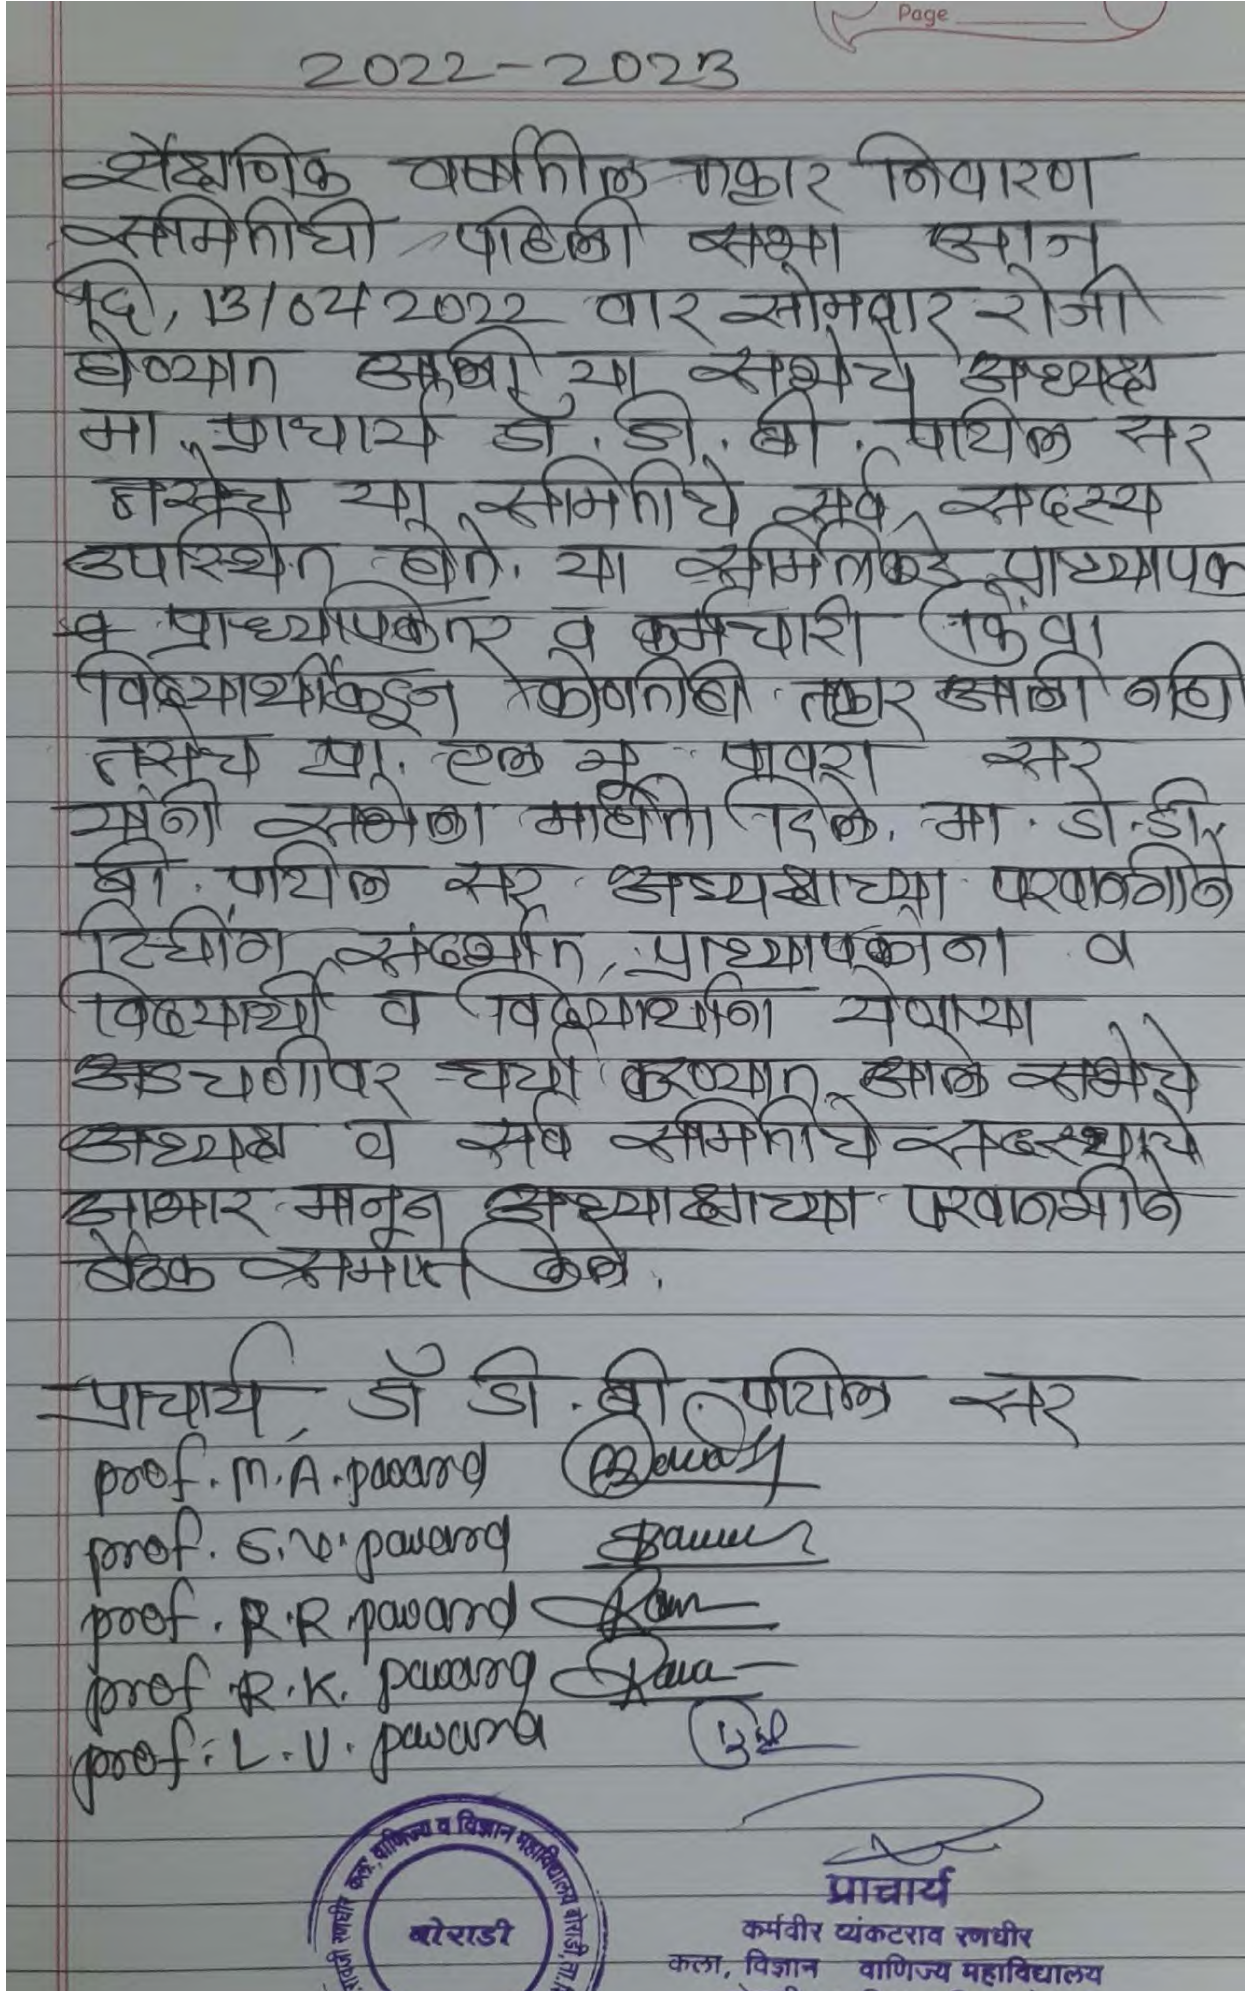 Page
2022-2023
शैक्षणिक वर्षातील तक्रार निवारण
समितीची पहिली सभा आज
13/04 2022 वार सोमवार रोजी
घेण्यात आली या सभेचे अध्यक्ष
मा. प्राचार्य डॉ. डी. बी. पाटील सर
तसेच या समितीचे सर्व सदस्य
उपस्थित होते. या समितीकडे प्राध्यापक
व प्राध्यापिकेतर व कर्मचारी किंवा
विद्यार्थीकडून कोणतीही तक्रार आली नाही
तसेच प्रा. एल व्ही पावरा सर
यांनी सभेला माहिती दिले. मा. डॉ. डी.
बी. पाटील सर अध्यक्षाच्या परवानगीने
टिचींग संदर्भात, प्राध्यापकांना व
विद्यार्थी व विद्यार्थीना येणाऱ्या
अडचणीवर चर्चा करण्यात आले सभेचे
अध्यक्ष व सर्व समितीचे सदस्याचे
आभार मानून अध्याक्षाच्या परवानगीने
बैठक समाप्त केले.
प्राचार्य, डॉ डी. बी. पाटील सर
prof. M.A. pawara
prof. S.V. pawara
prof. R.R. pawara
prof R.K. pawara
prof. L.V. pawara
रणधीर कला, वाणिज्य व विज्ञान महाविद्यालय बोराडी, ता.
बोराडी
प्राचार्य
कर्मवीर व्यंकटराव रणधीर
कला, विज्ञान वाणिज्य महाविद्यालय